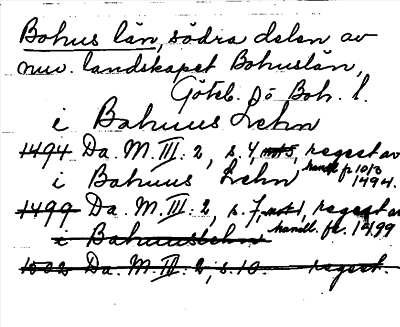 Bohus län, södra delen av
nuv. landskapet Bohuslän,
Göteb. o Boh. l.
i Bahuus Lehn
1494 Da. M. III: 2, s. 4, not 5, regest av
handl. fr. 10/3
1494.
i Bahuus Lehn
1499 Da. M. III: 2, s. 7, not 1, regest av
handl. fr. 1499
i Bahuuslehn
1502 Da. M. III: 2, s. 10. regest.